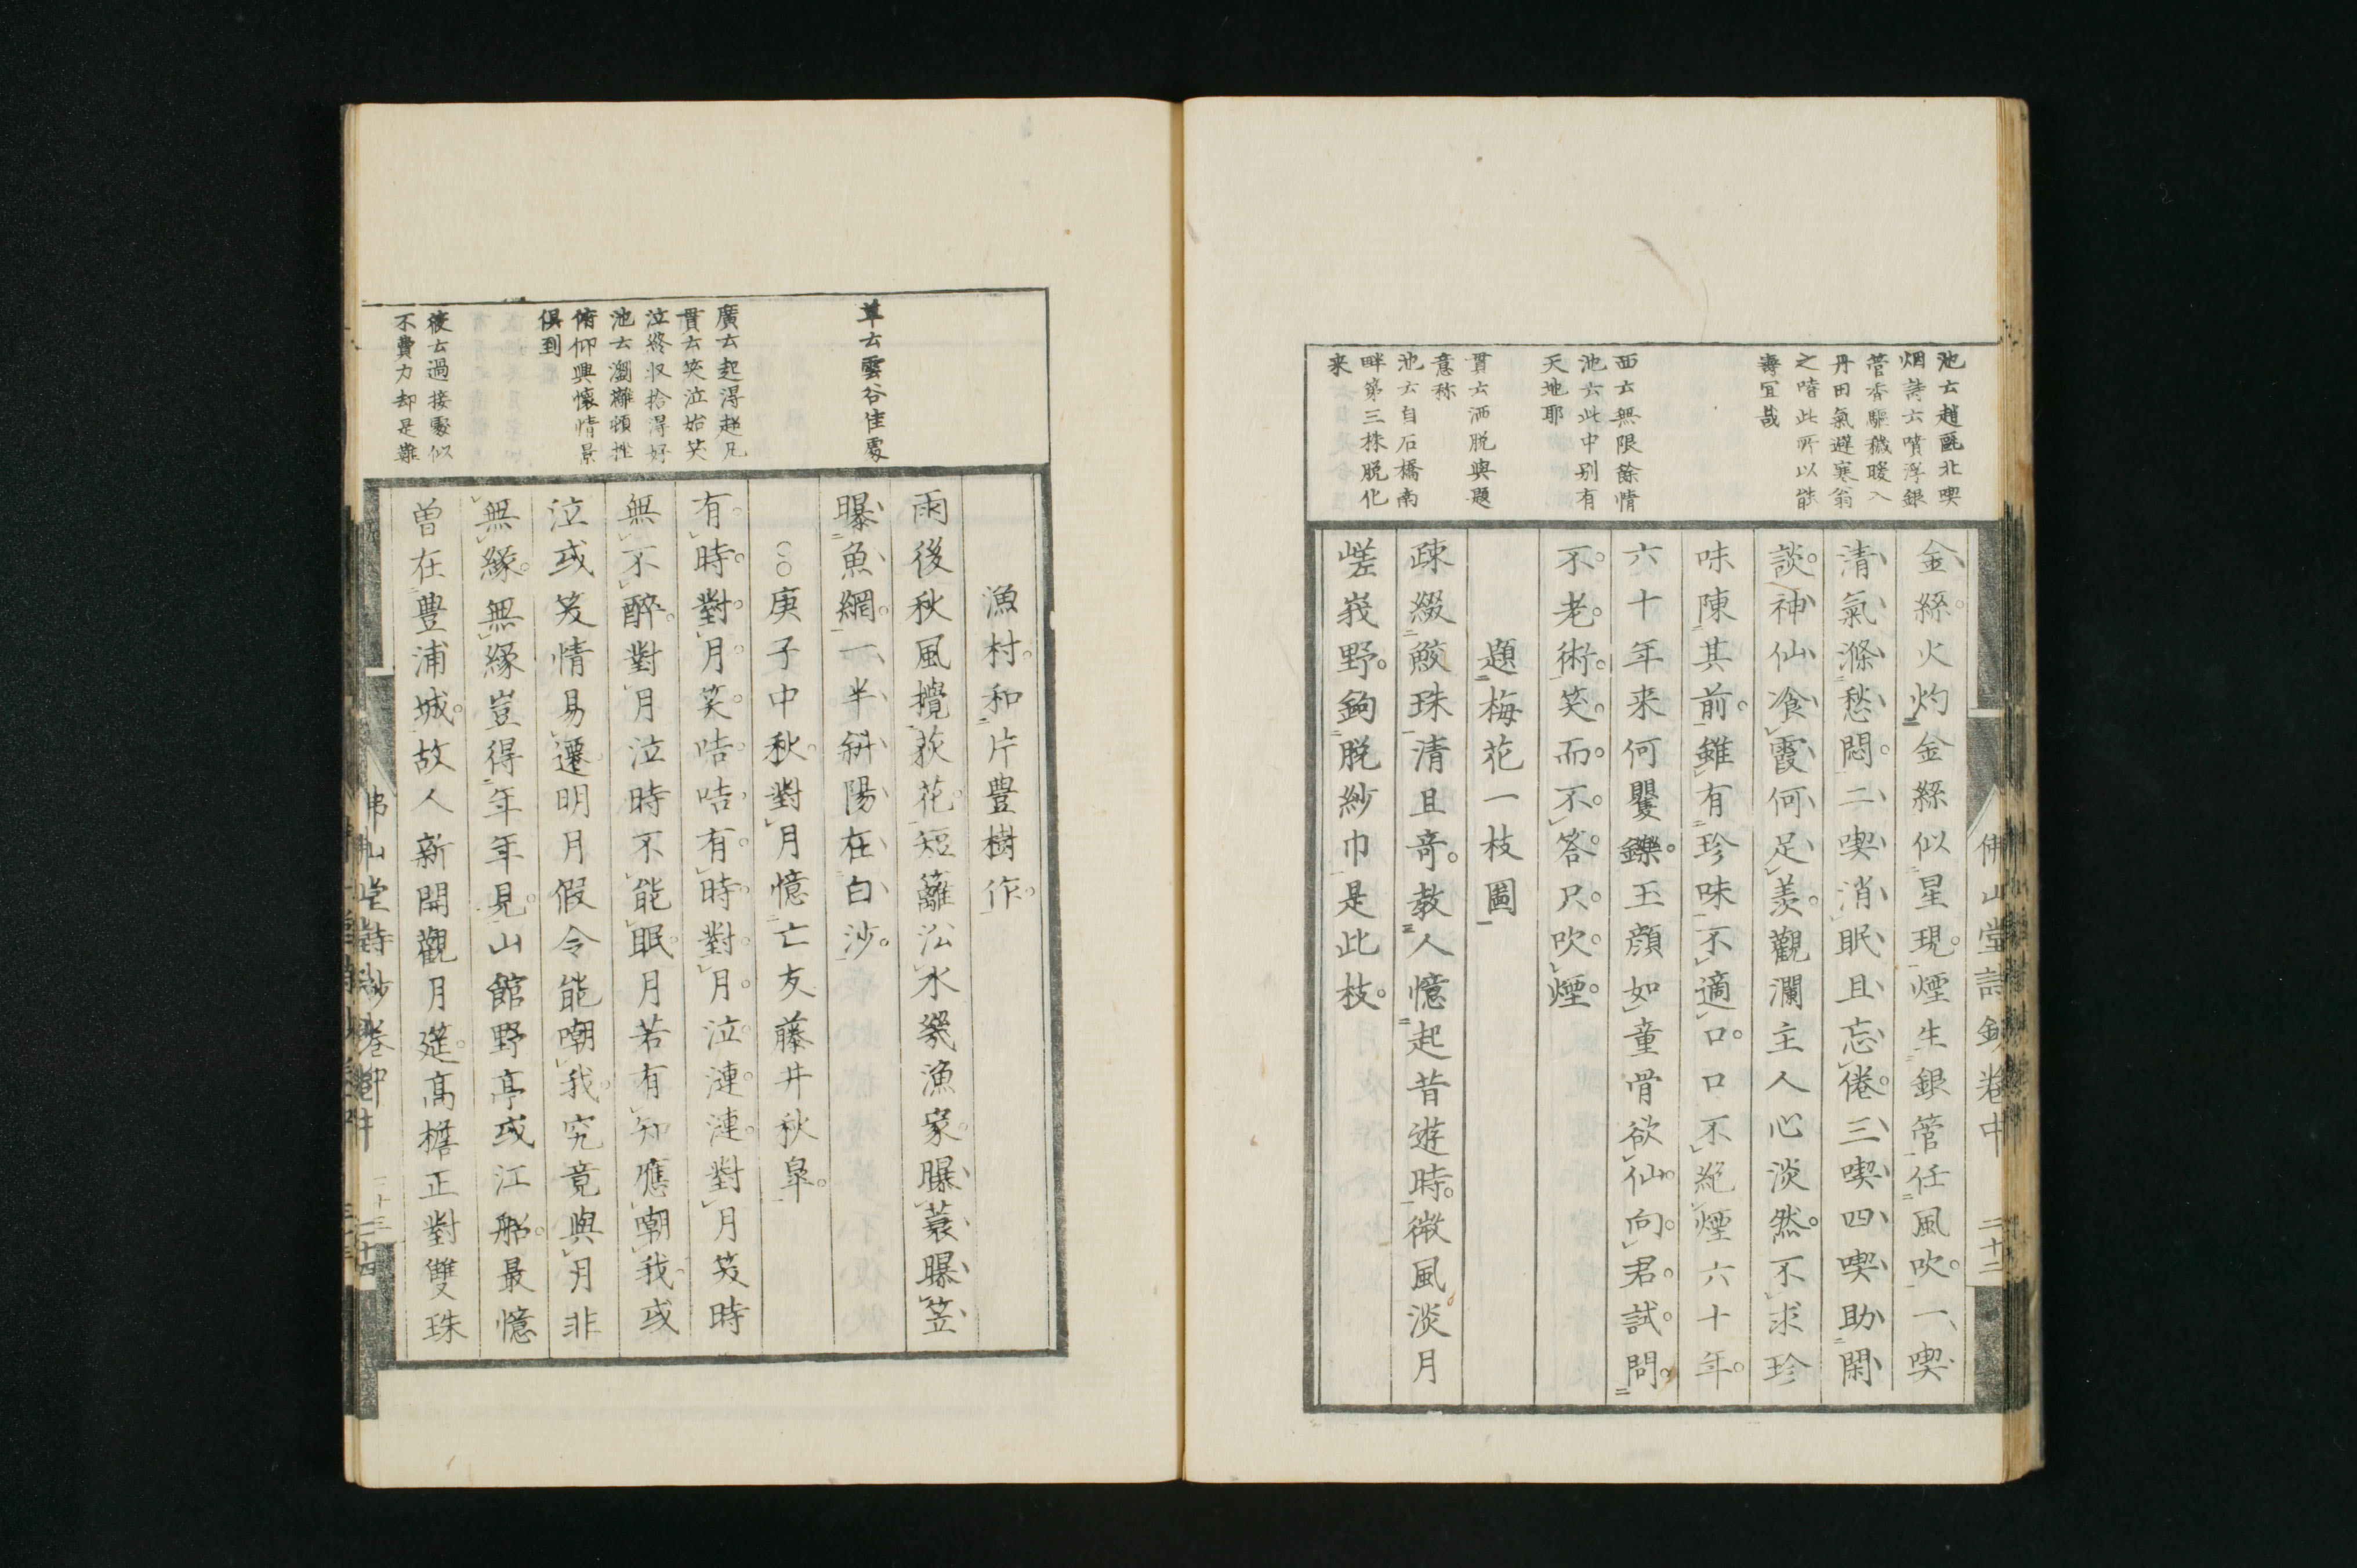 池云趙甌北喫
烟詩云噴浮銀
管香驅穢暖入
丹田氣遲寒翁
之嗜此所以能
壽宜哉
西云無限餘情
池云此中別有
天地耶
貫云洒脱與題
意称
池云自石橋南
畔第三株脱化
来
佛山堂詩鈔卷中 二十三
金絲火灼金絲似星現煙生銀管任風吹一喫
清氣滌愁悶二喫消眠且忘倦三喫四喫助閑
談神仙飡霞何足羡觀瀾主人心淡然不求珍
味陳其前雖有珍味不適口口不絶煙六十年
六十年来何矍鑠玉顔如童骨欲仙向君試問
不老術笑而不答只吹煙
題梅花一枝圖
疎綴鮫珠清且竒教人憶起昔遊時微風淡月
嵯峩野鉤脱紗巾是此枝
草云雲谷佳處
廣云起得超凡
貫云笑泣始笑
泣終収拾得好
池云瀏灕頓挫
俯仰興懐情景
倶到
後云過接處似
不費力却是難
漁村和片豊樹作
雨後秋風攪荻花短籬沿水幾漁家曝蓑曝笠
曝魚網一半斜陽在白沙
○○庚子中秋對月憶亡友藤井秋皐
有時對月笑咭咭有時對月泣漣漣對月笑時
無不醉對月泣時不能眠月若有知應嘲我或
泣或笑情易遷明月假令能嘲我究竟與月非
無緣無緣豈得年年見山館野亭或江船最憶
曽在豊浦城故人新開觀月筵高檐正對雙珠
佛山堂詩鈔卷中
二十四